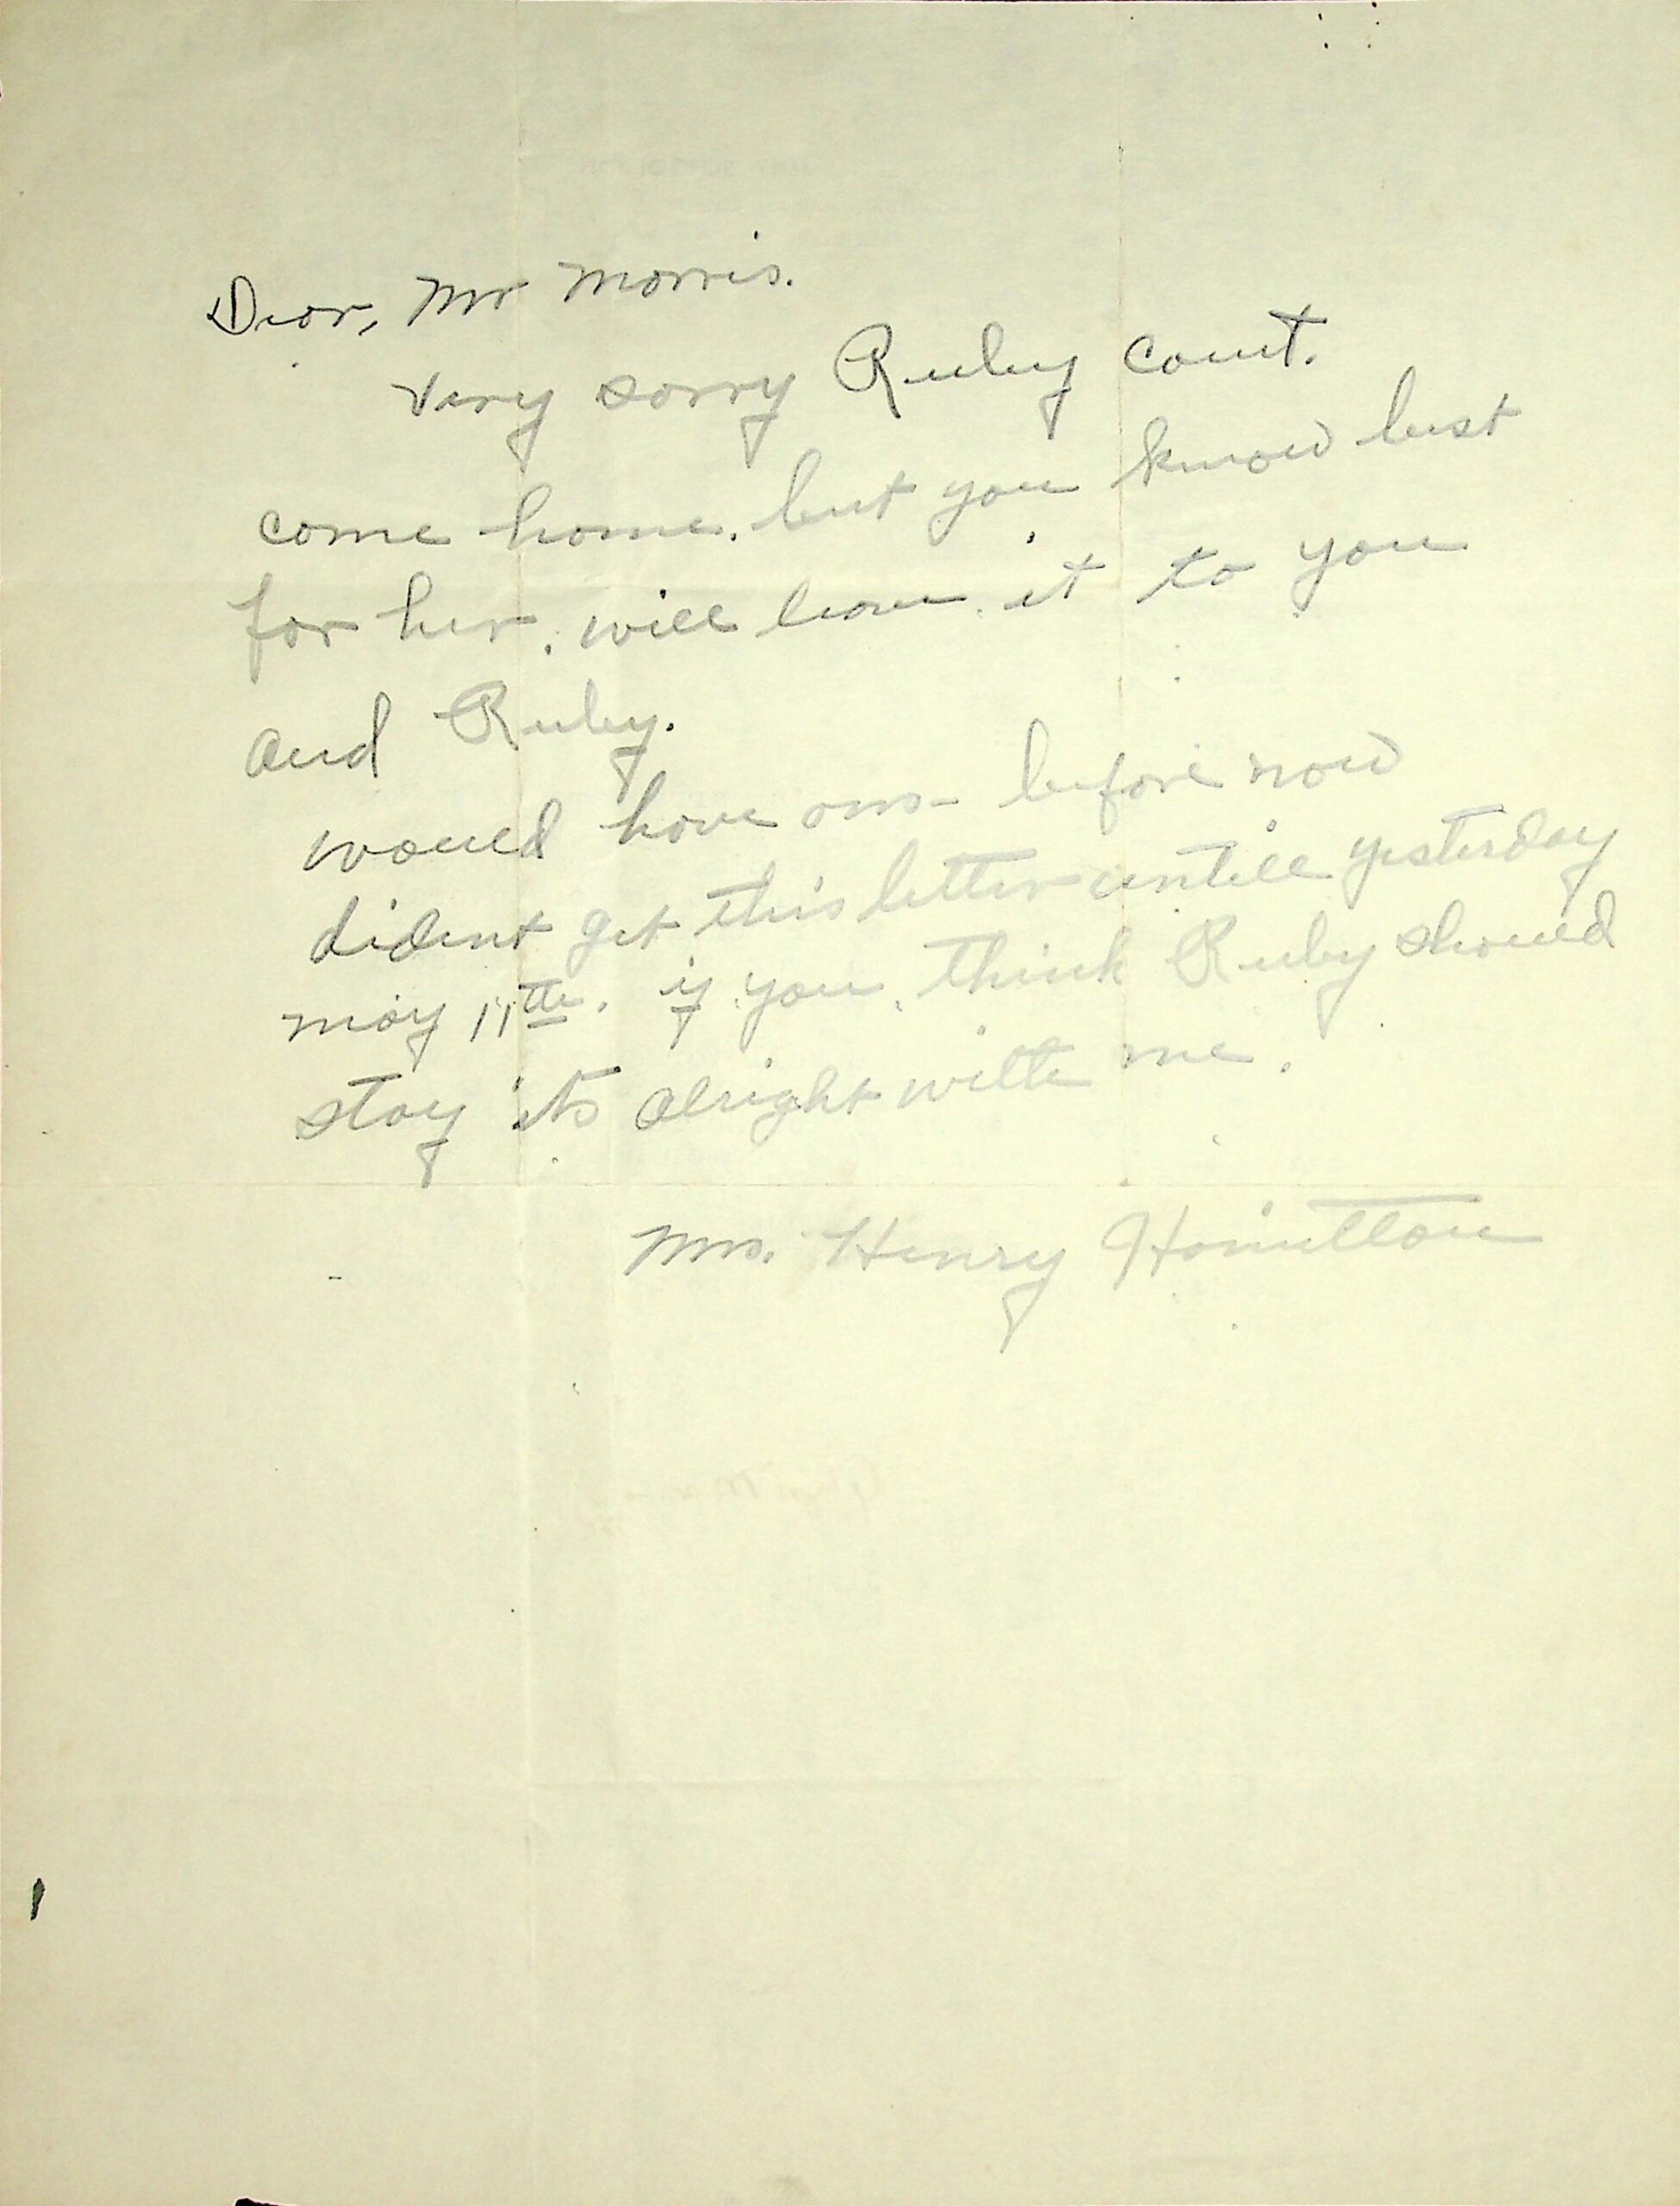 Dear, Mr Morris.
Very sorry Ruby cant.
come home. but you know best
for her. will leave it to you
and Ruby.
would have ans- before now
dident get this letter untill yesterday
may 11th. if you think Ruby should
stay its alright with me.
Mrs. Henry Hamilton